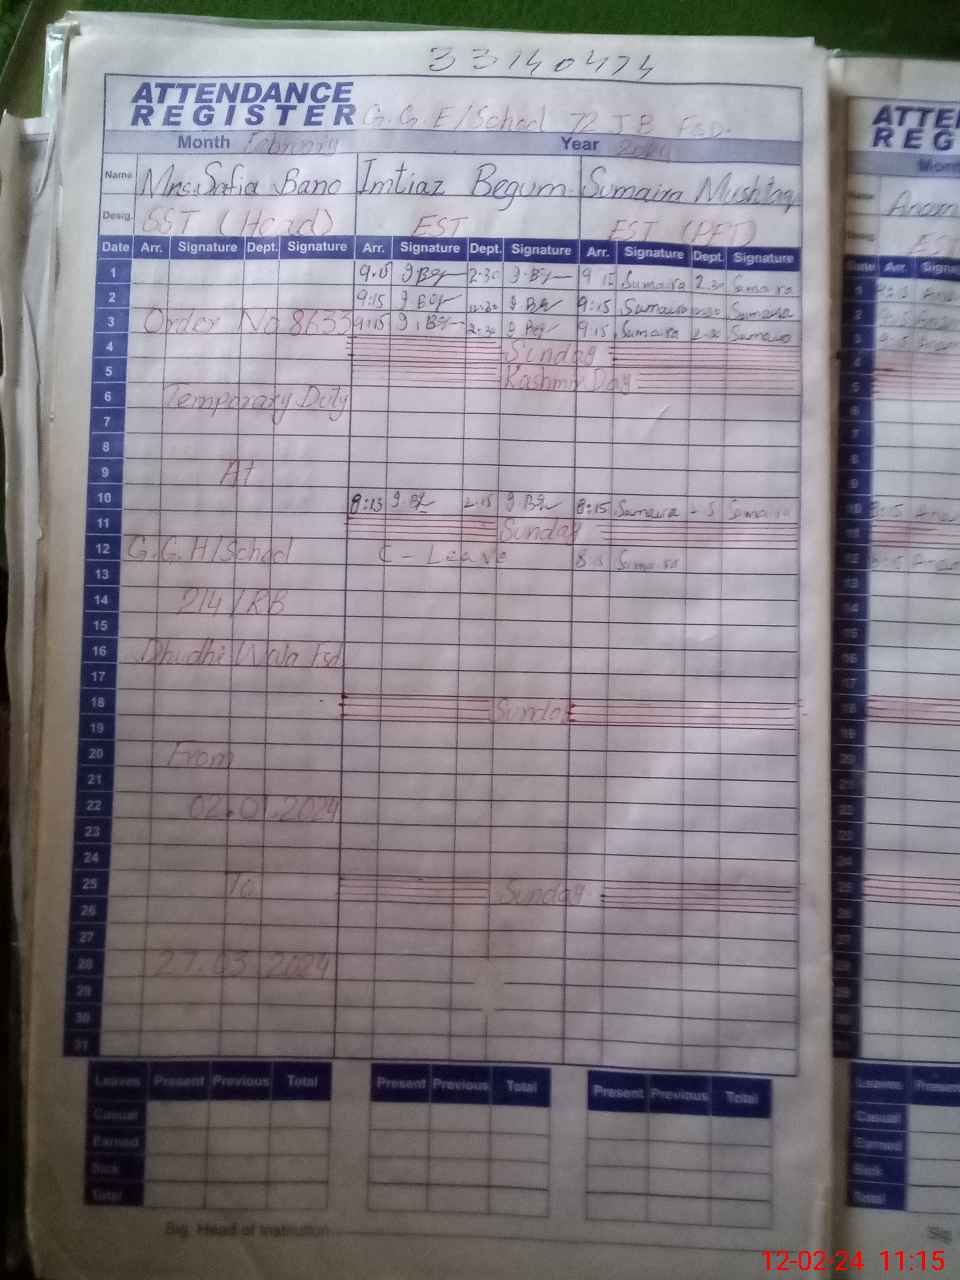 33140474
ATTENDANCE
REGISTER G.G.E/School 72 J B Fsd.
Month February Year 2024
Name Mrs. Safia Bano Imtiaz Begum Sumaira Mushtaq
Desig. SST (Head) EST EST (PET)
Date Arr. Signature Dept. Signature Arr. Signature Dept. Signature Arr. Signature Dept. Signature
1 2-30 9 15 Sumaira Sumaira
2 9:15 9:15 Sumaira Sumaira
3 Order No 8633 9:15 2:30 9:15 Sumaira Sumaira
4 Sunday
5 Kashmir Day
6 Temporary Duty
7
8
9 At
10 8:15 2:15 8:15 Sumaira Sumaira
11 Sunday
12 G.G.H/School C - Leave Sumaira
13
14 214/RB
15
16 Dhudhi Wala Fsd
17
18 Sunday
19
20 From
21
22 02.01.2024
23
24
25 To Sunday
26
27
28 27.03.2024
29
30
31
Leaves Present Previous Total Present Previous Total Present Previous Total
Casual
Earned
Sick
Total
Sig. Head of Institution
ATTE
REG
Mont
Anam
EST
Date Arr. Signa
1
2
3
4
5
6
7
8
9
10 8:15
11
12
13
14
15
16
17
18
19
20
21
22
23
24
25
26
27
28
29
30
31
Leaves Prese
Casual
Earned
Sick
Total
Sig.
12-02-24 11:15